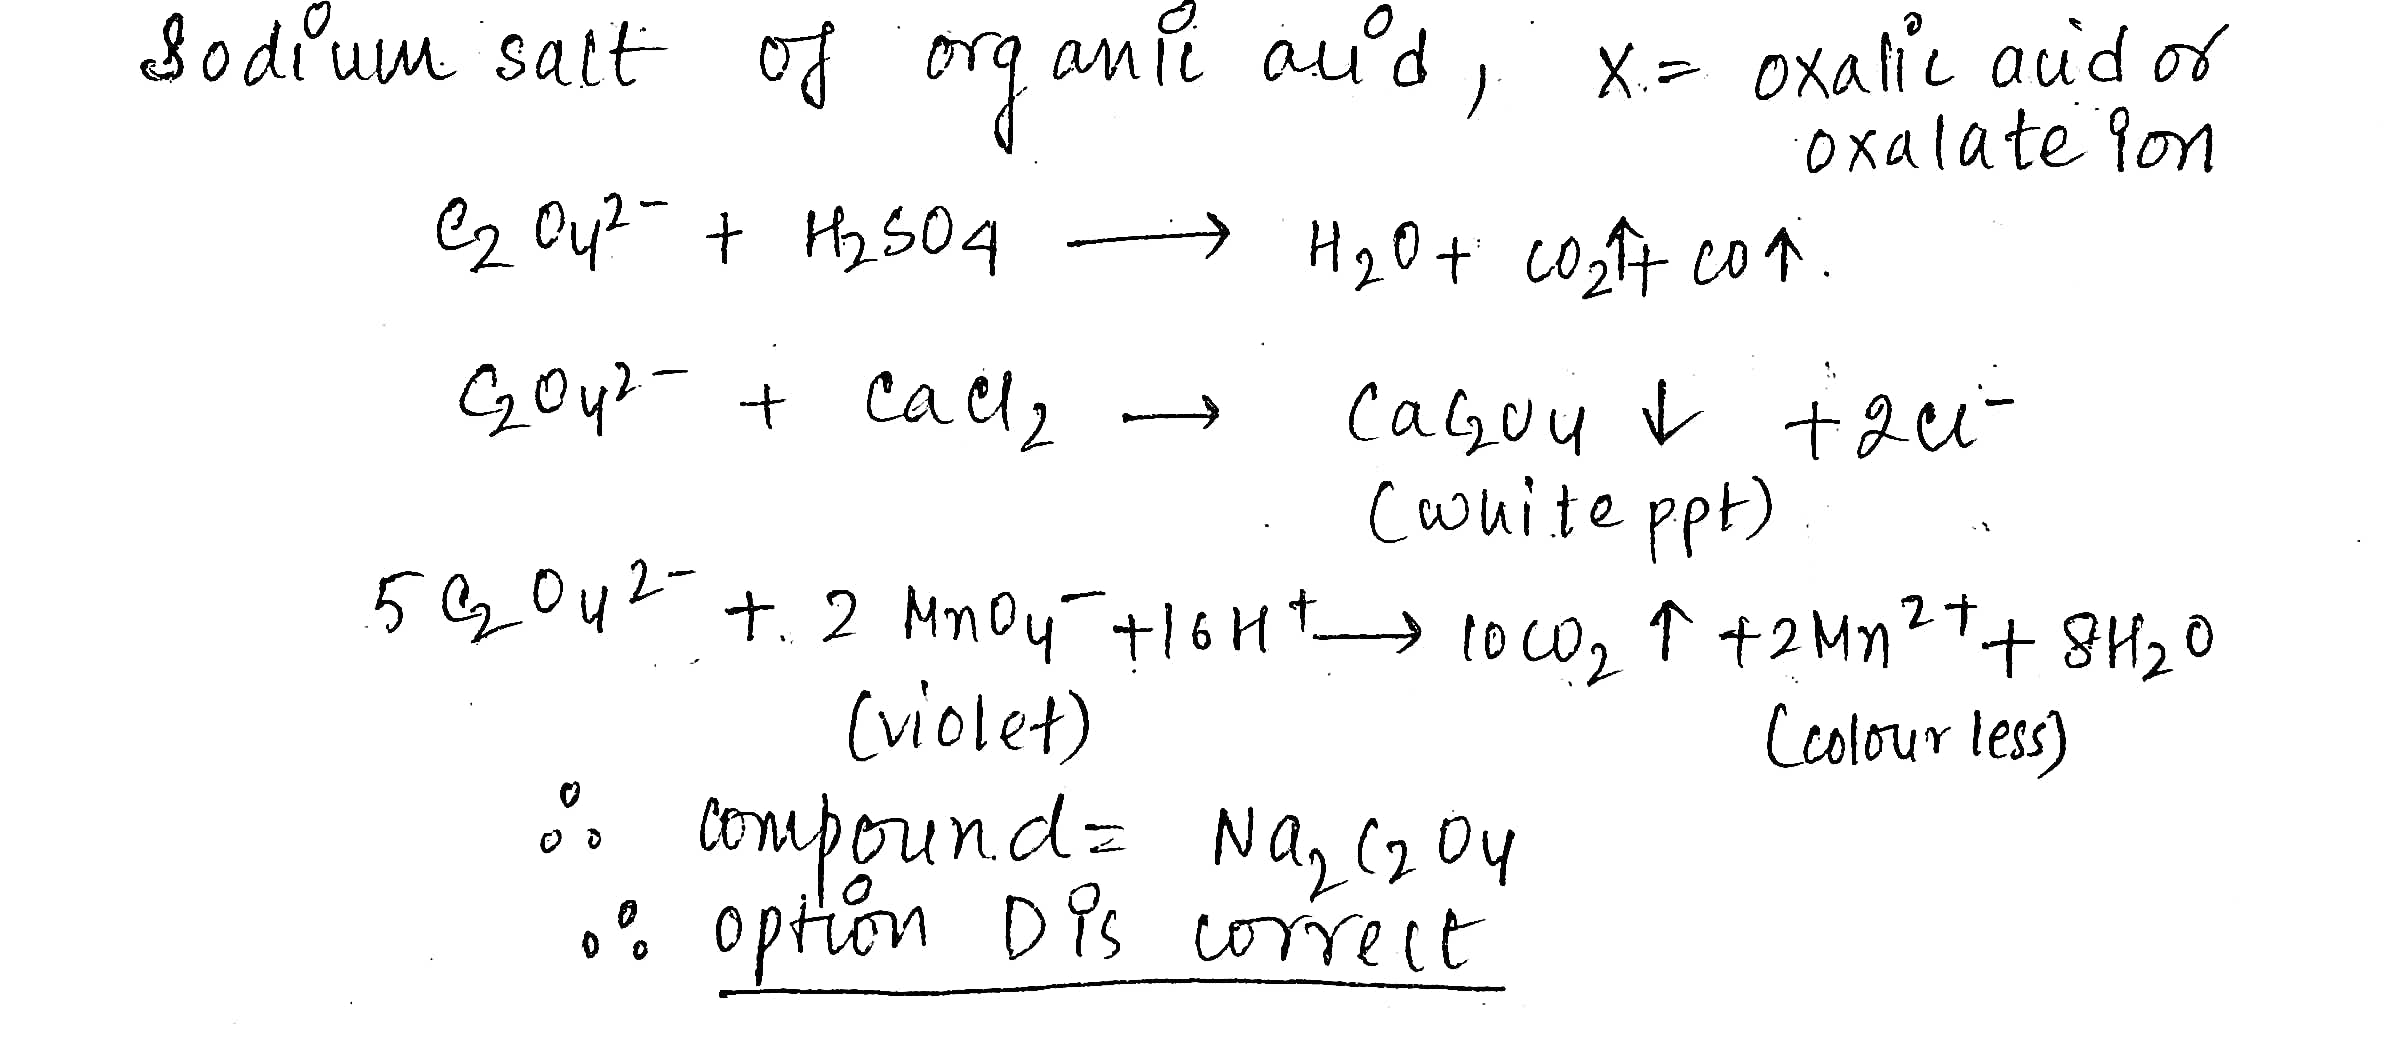 Sodium salt of organic acid, X = oxalic acid or
oxalate ion
C2O4^2- + H2SO4 ⟶ H2O + CO2↑ + CO↑.
C2O4^2- + CaCl2 → CaC2O4 ↓ + 2Cl^-
(white ppt)
5 C2O4^2- + 2 MnO4^- + 16H^+ ⟶ 10CO2 ↑ + 2Mn^2+ + 8H2O
(violet) (colour less)
∴ compound = Na2C2O4
∴ option D is correct